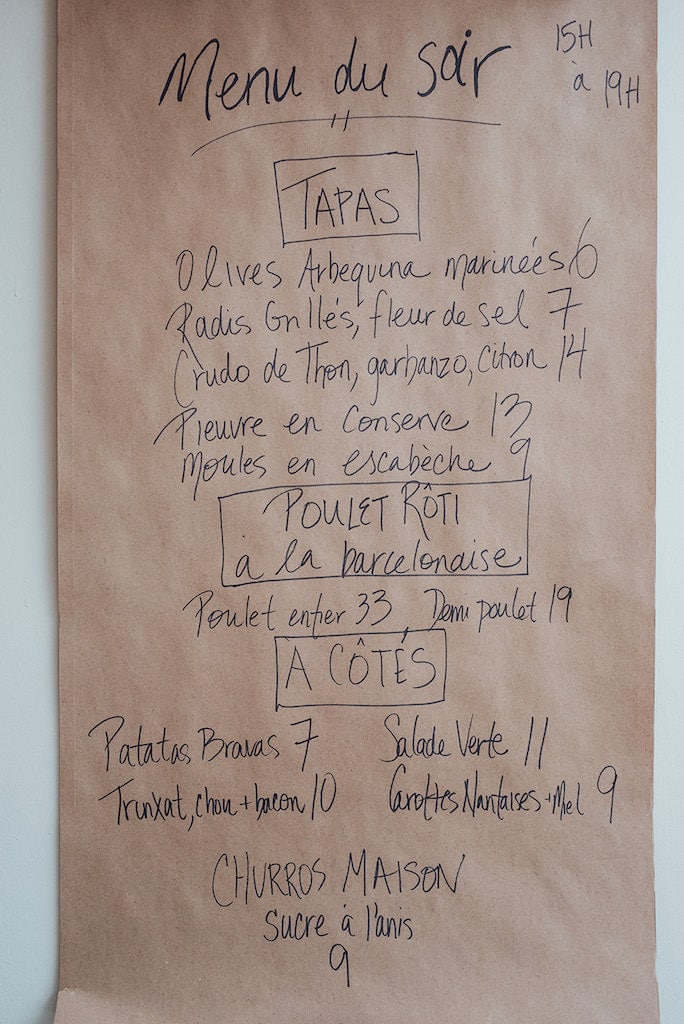 Menu du soir
15H
à 19H
TAPAS
Olives Arbequina marineés 6
Radis Grillés, fleur de sel 7
Crudo de Thon, garbanzo, citron 14
Pieuvre en Conserve 13
Moules en escabèche 9
POULET RÔTI
a la barcelonaise
Poulet entier 33, Demi poulet 19
A CÔTÉS
Patatas Bravas 7
Salade Verte 11
Trinxat, chou + bacon 10
Carottes Nantaises + Miel 9
CHURROS MAISON
Sucre à l'anis
9